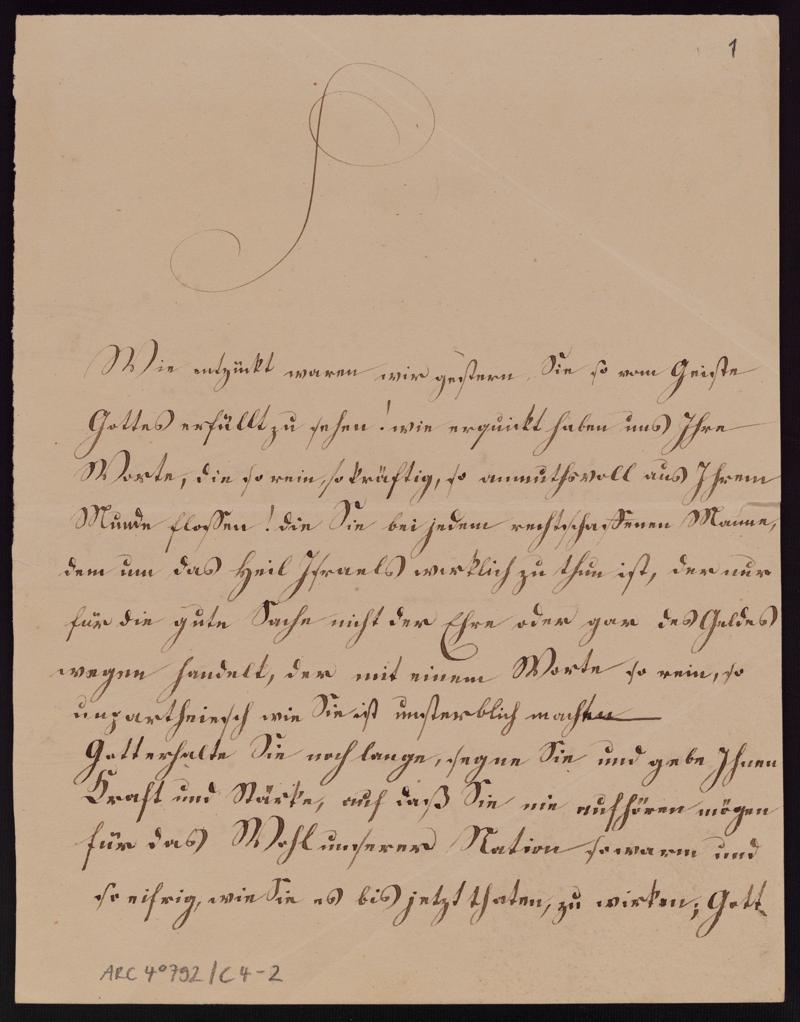 1
Wie entzückt waren wir gestern, Sie so vom Geiste
Gottes erfüllt zu sehen! wie erquickt haben uns Ihre
Worte, die so rein, so kräftig, so anmuthsvoll aus Ihrem
Munde flossen! die Sie bei jedem rechtschaffenen Manne,
dem um das Heil Israels wirklich zu thun ist, der nur
für die gute Sache nicht der Ehre oder gar des Geldes
wegen handelt, der mit einem Worte so rein, so
unpartheiesch wie Sie ist unsterblich machten
Gott erhalte Sie noch lange, segne Sie und gebe Ihnen
Kraft und Stärke, auf daß Sie nie aufhören mögen
für das Wohl unserer Nation so warm und
so eifrig, wie Sie es bis jetzt thaten, zu wirken; Gott
ARC 4°792/C4-2